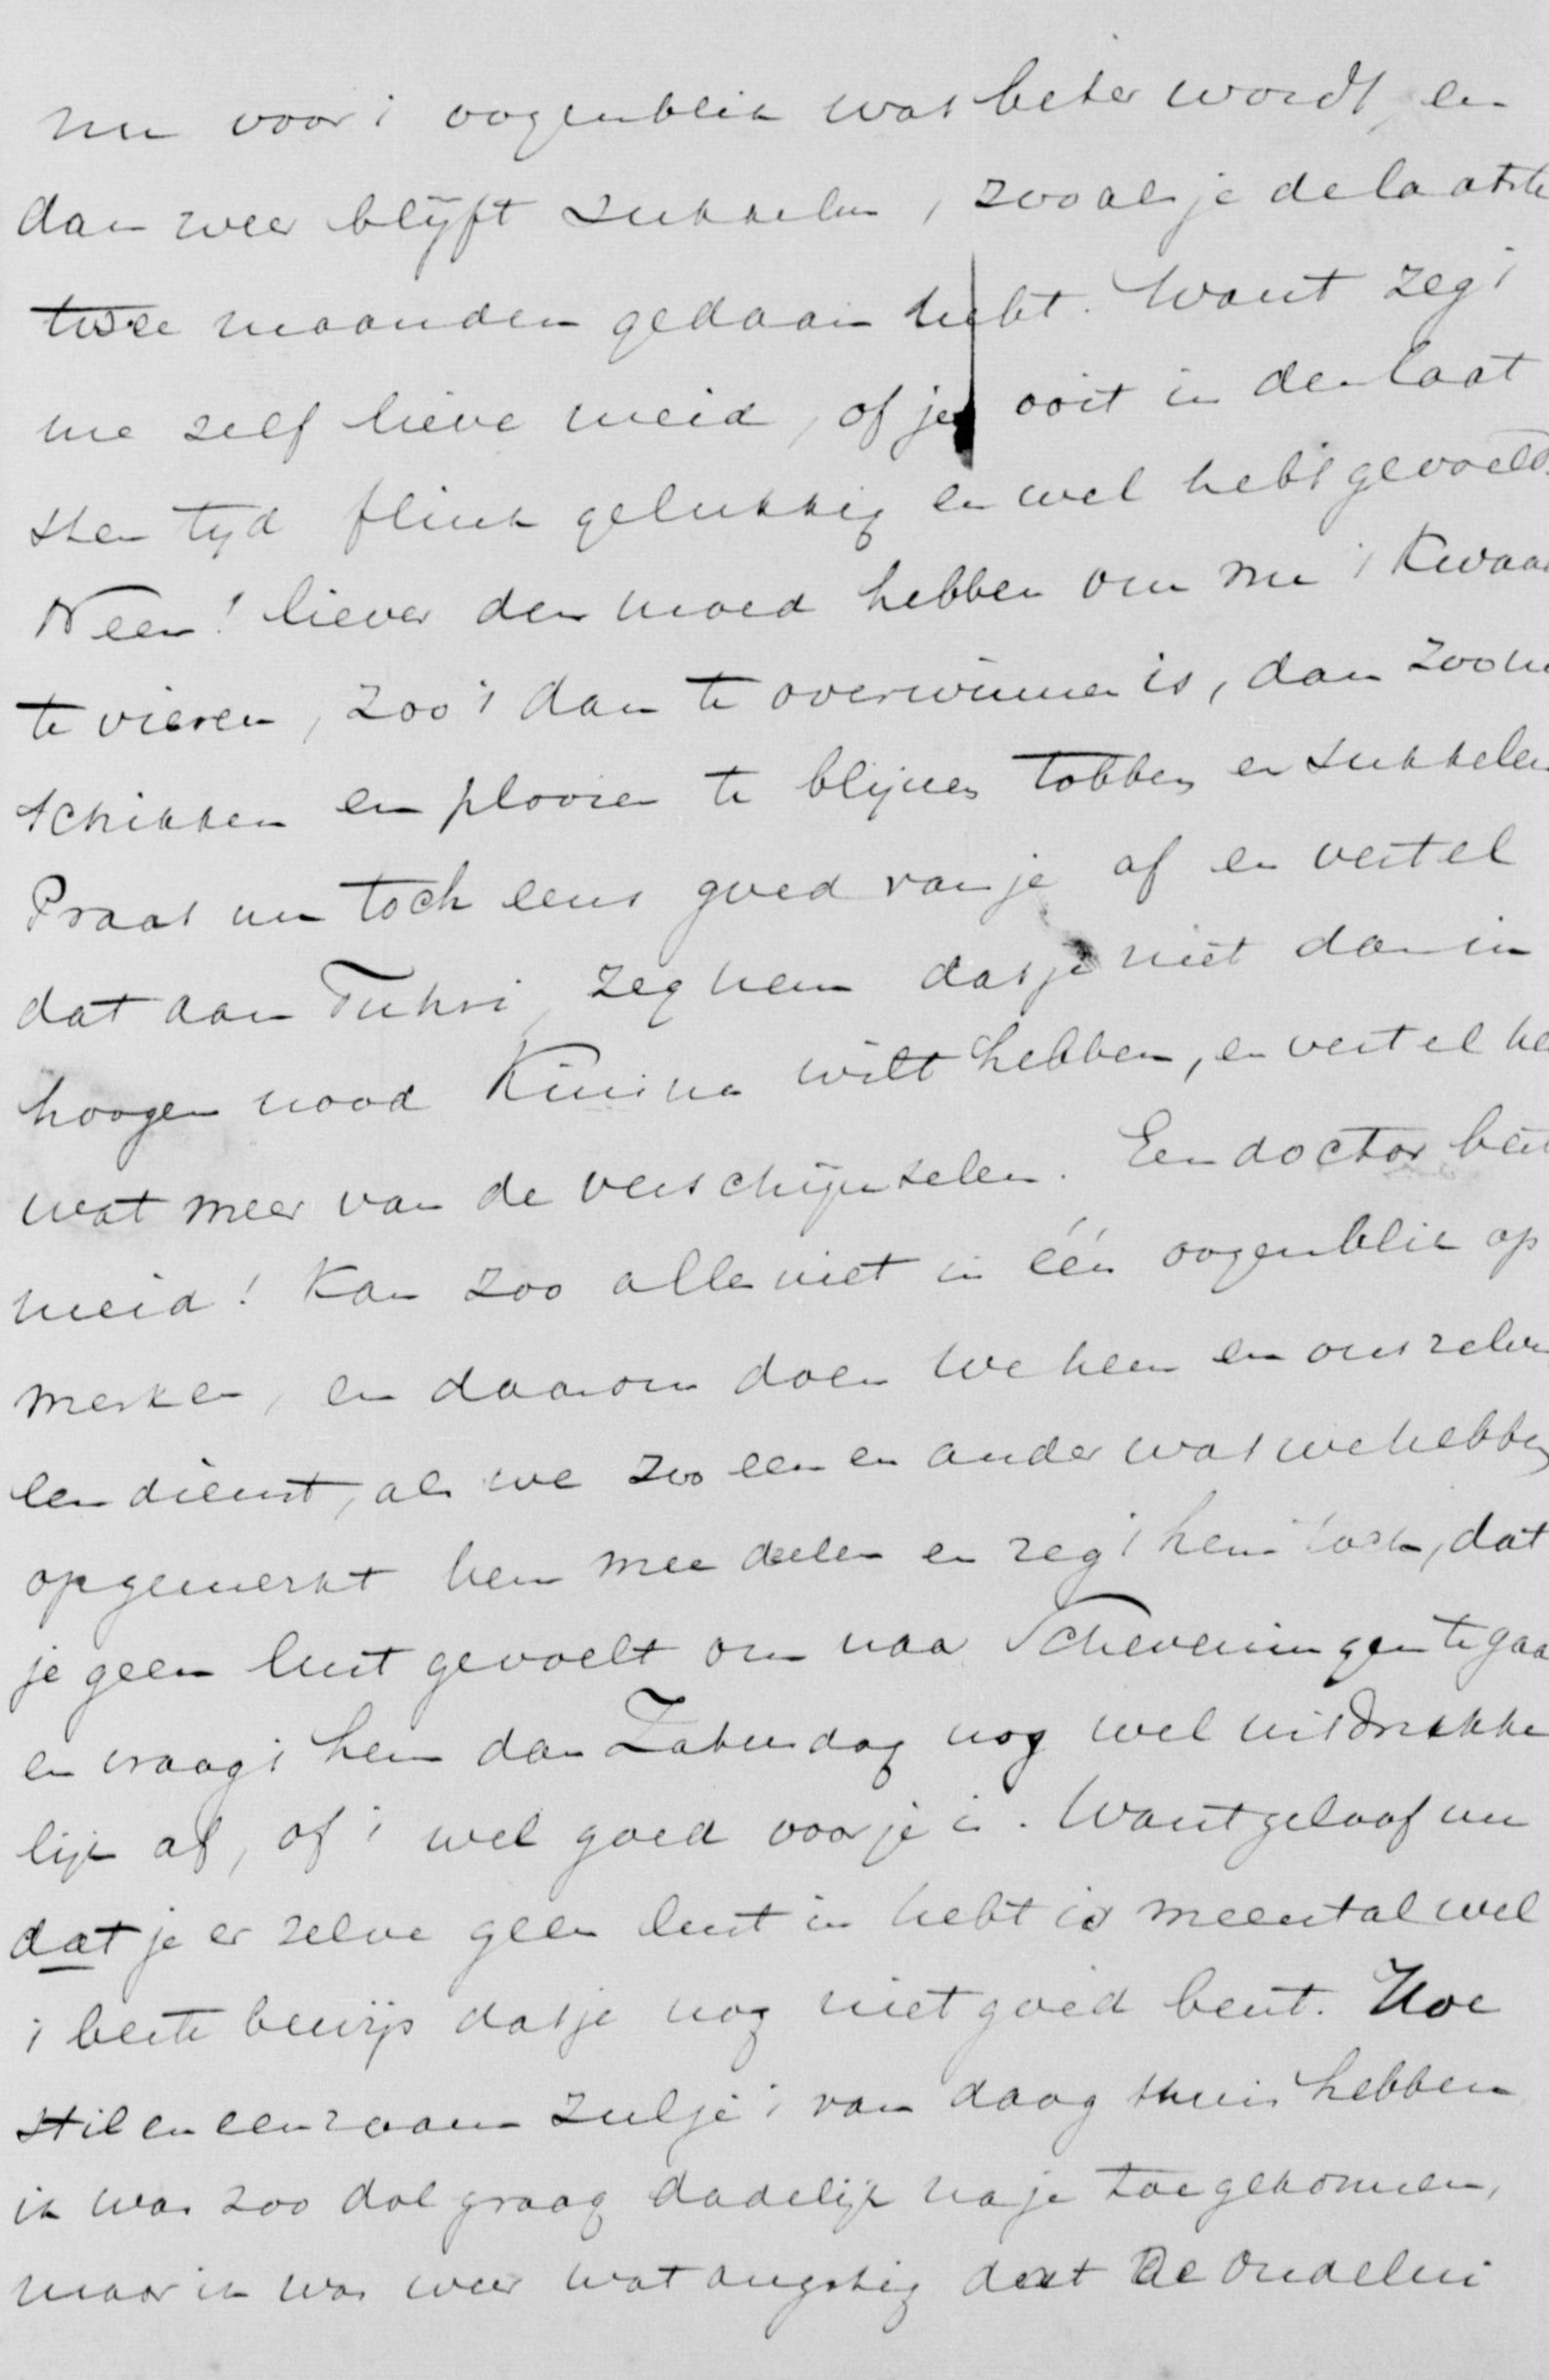 nu voor 't oogenblik wat beter wordt, en
dan weer blijft sukkelen, zooals je de laatste
twee maanden gedaan hebt. Want zeg 't
me zelf lieve meid, of je ooit in den laat
sten tijd flink gelukkig en wel hebt gevoeld.
Neen! liever den moed hebben om nu 't Kwaad
te vieren, zoo 't dan te overwinnen is, dan zoo
schikken en plooien te blijven tobben en sukkelen
Praat nu toch eens goed van je af en vertel
dat aan Tuhri, zeg hem dat je niet dan in
hoogen nood Kinina wilt hebben, en vertel he
wat meer van de verschijnselen. Een doctor best
meid! Kan zoo alles niet in één oogenblik op
merken, en daarom doen we hem en ons zelve
een dienst, als we zoo een en ander wat we hebben
opgemerkt hem mee deelen en zeg 't hem toch, dat
je geen lust gevoelt om naar Scheveningen te gaa
en vraag 't hem dan Zaturdag nog wel uitdrukke
lijk af, of 't wel goed voor je is. Want geloof me
dat je er zelve geen lust in hebt is meestal wel
't beste bewijs dat je nog niet goed bent. Hoe
stil en eenzaam zul je 't van daag thuis hebben
ik was zoo dol graag dadelijk na je toegekomen,
maar ik was weer wat angstig dat de oudelui